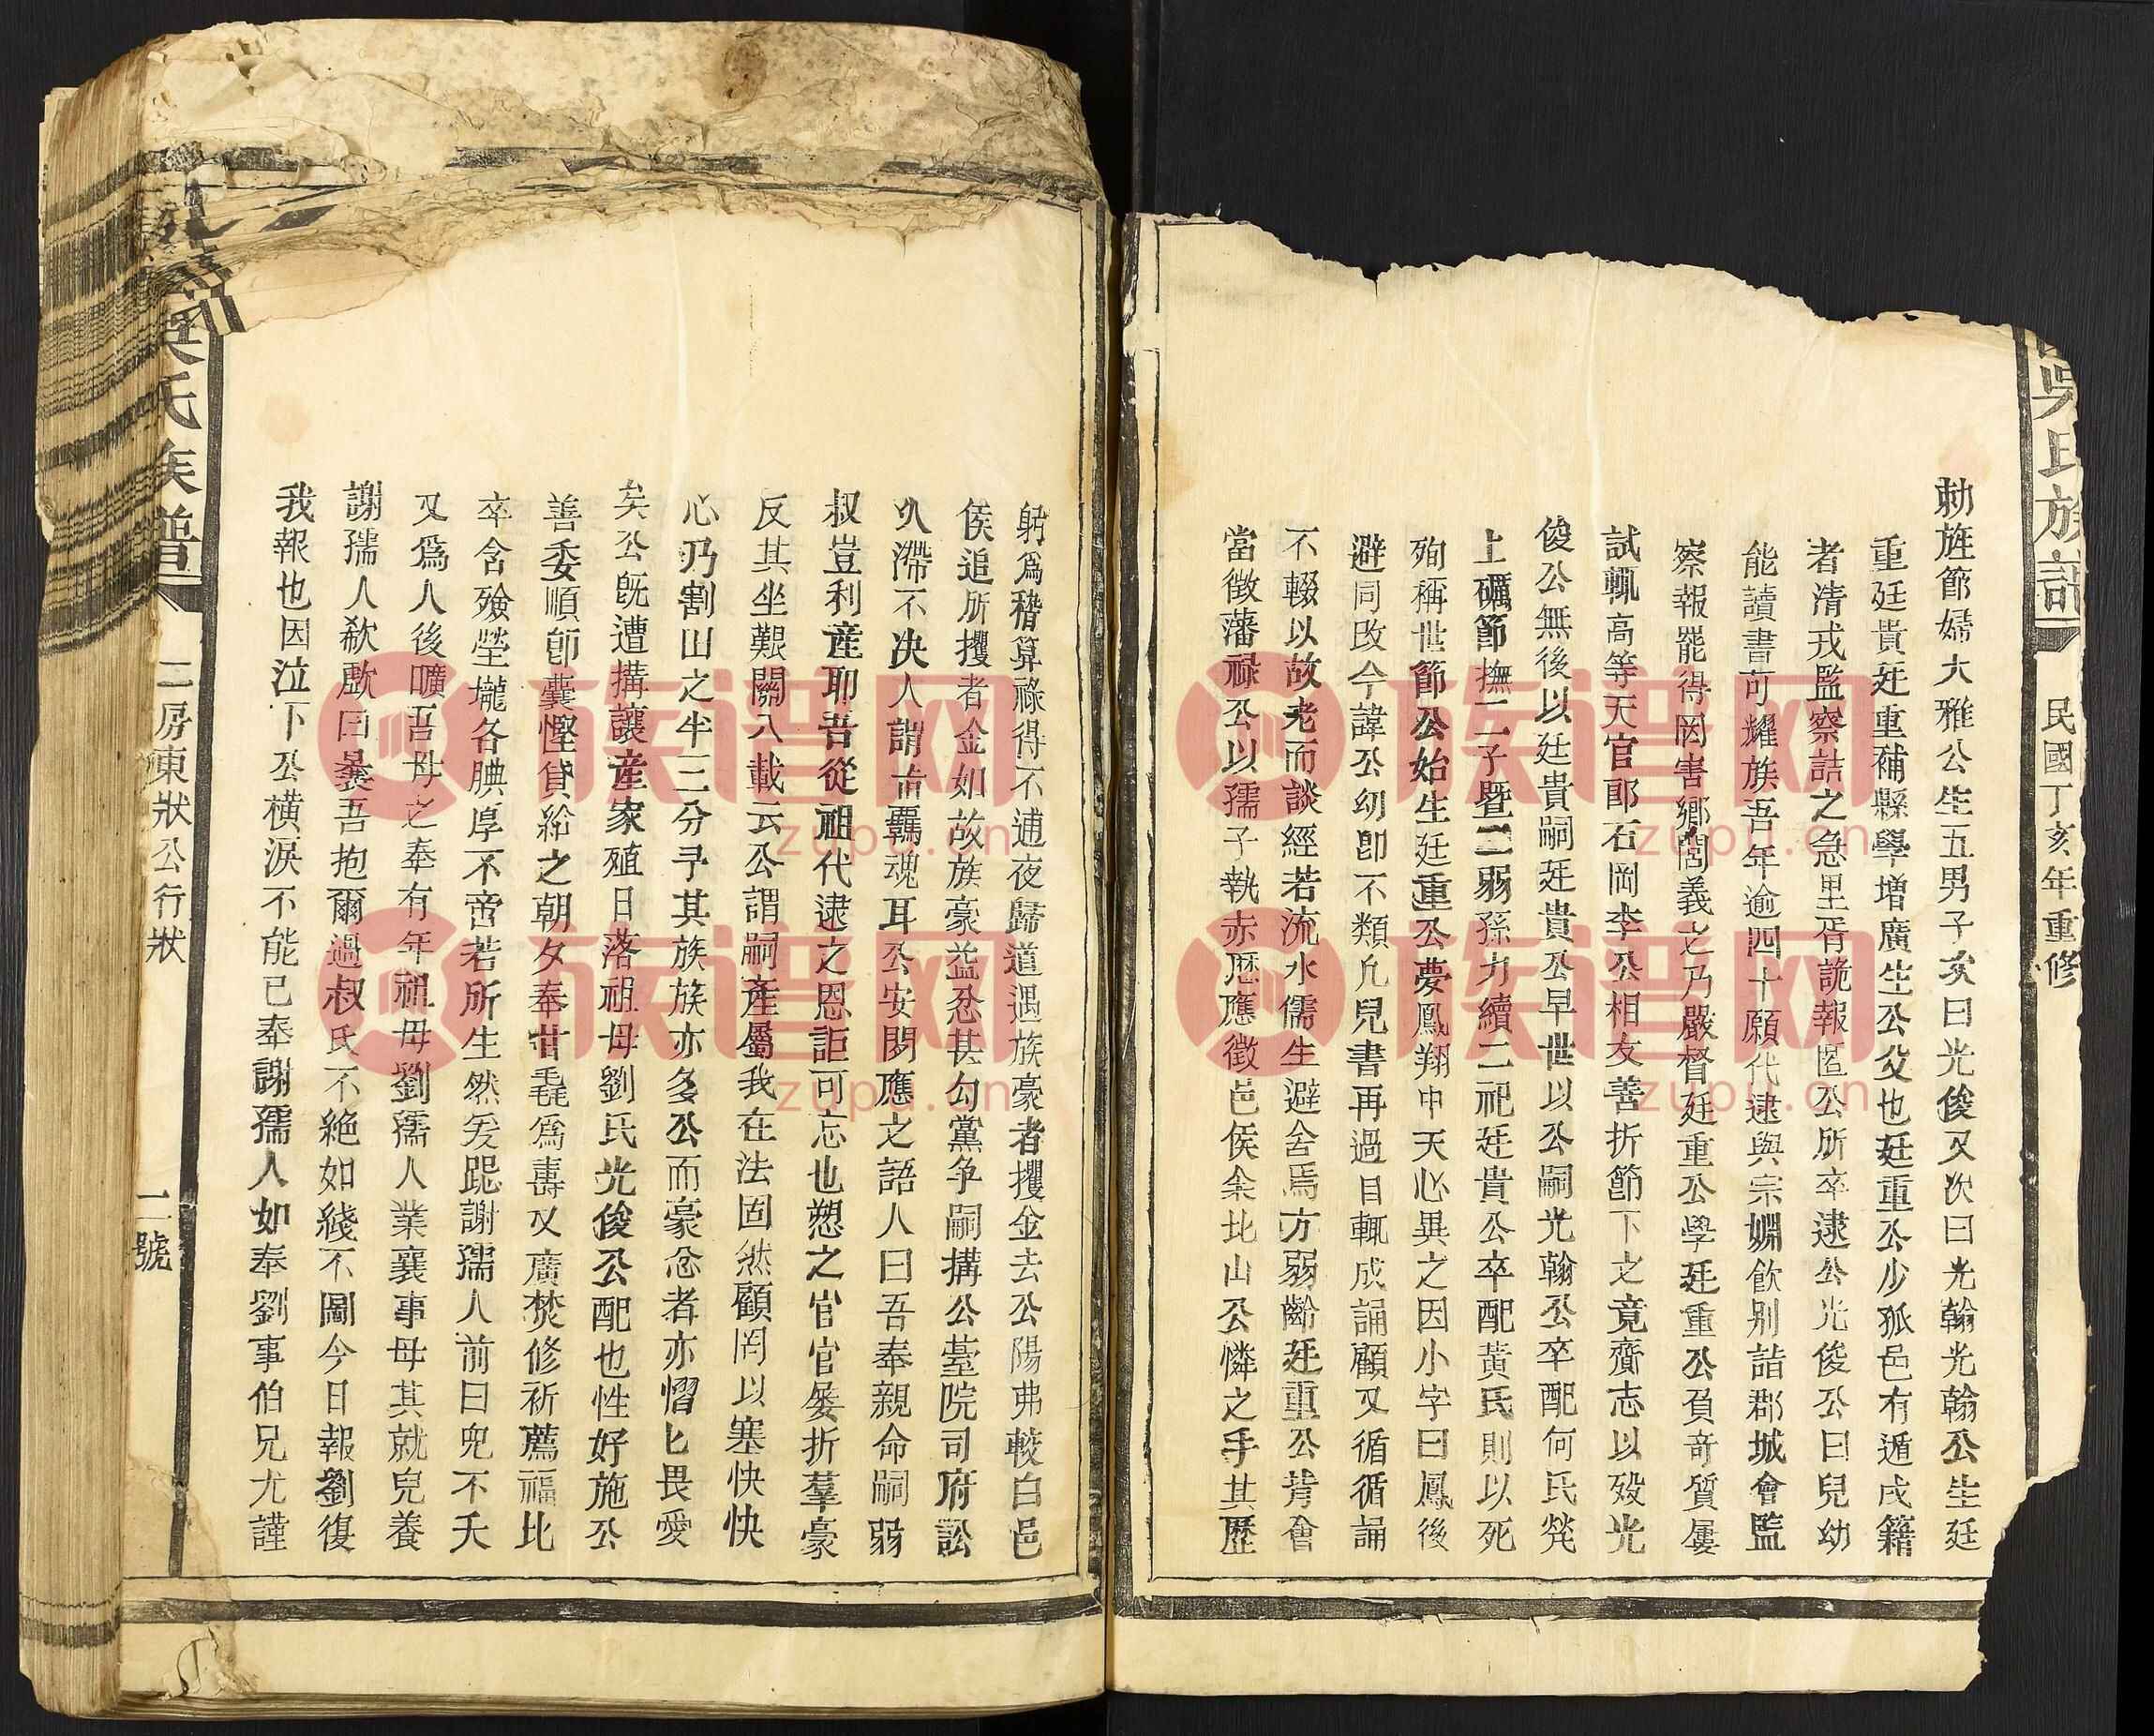 吳氏族譜
民國丁亥年重修
勅旌節婦大雅公生五男子次曰光俊又次曰光翰光翰公生廷
重廷貴廷重補縣學增廣生公父也廷重公少孤邑有遁戍籍
者清戎監察詰之急里胥詭報匿公所卒逮公光俊公曰兒幼
能讀書可耀族吾年逾四十願代逮與宗婣飲别詣郡城會監
察報罷得罔害鄉閭義之乃嚴督廷重公學廷重公負奇質屢
試輒高等天官郎石岡李公相友善折節下之竟齎志以歿光
俊公無後以廷貴嗣廷貴公早世以公嗣光翰公卒配何氏煢
上礪節撫二子暨二弱孫力續二祀廷貴公卒配黃氏則以死
殉稱世節公始生廷重公夢鳳翔中天心異之因小字曰鳳後
避同改今諱公幼卽不類凡兒書再過目輒成誦顧又循循誦
不輟以故老而談經若流水儒生避舍焉方弱齡廷重公肯會
當徵藩祿公以孺子執赤應徵邑侯余北山公憐之手其歷
躬爲稽算祿得不逋夜歸道遇族豪者攫金去公陽弗較白邑
侯追所攫者金如故族豪益忿甚勾黨爭嗣搆公臺院司府訟
久滯不决人謂市覊魂耳公安閉應之語人曰吾奉親命嗣弱
叔豈利産耶吾從祖代逮之恩詎可忘也愬之官官屡折羣豪
反其坐艱關八載云公謂嗣產屬我在法固然顧罔以塞快快
心乃割山之半三分予其族族亦多公而豪忿者亦慴匕畏愛
矣公旣遭搆讓産家殖日落祖母劉氏光俊公配也性好施公
善委順卽囊慳貸給之朝夕奉甘毳爲壽又廣焚修祈薦福比
卒含殮塋壠各腆厚不啻若所生然爰跽謝孺人前曰兒不夭
又爲人後曠吾母之奉有年祖母劉孺人業襄事母其就兒養
謝孺人欷歔曰曩吾抱爾過叔氏不絶如綫不圖今日報劉復
我報也因泣下公横淚不能已奉謝孺人如奉劉事伯兄尤謹
吳氏族譜
二房東狀公行狀
二號
族谱网
zupu.cn
族谱网
zupu.cn
族谱网
zupu.cn
族谱网
zupu.cn